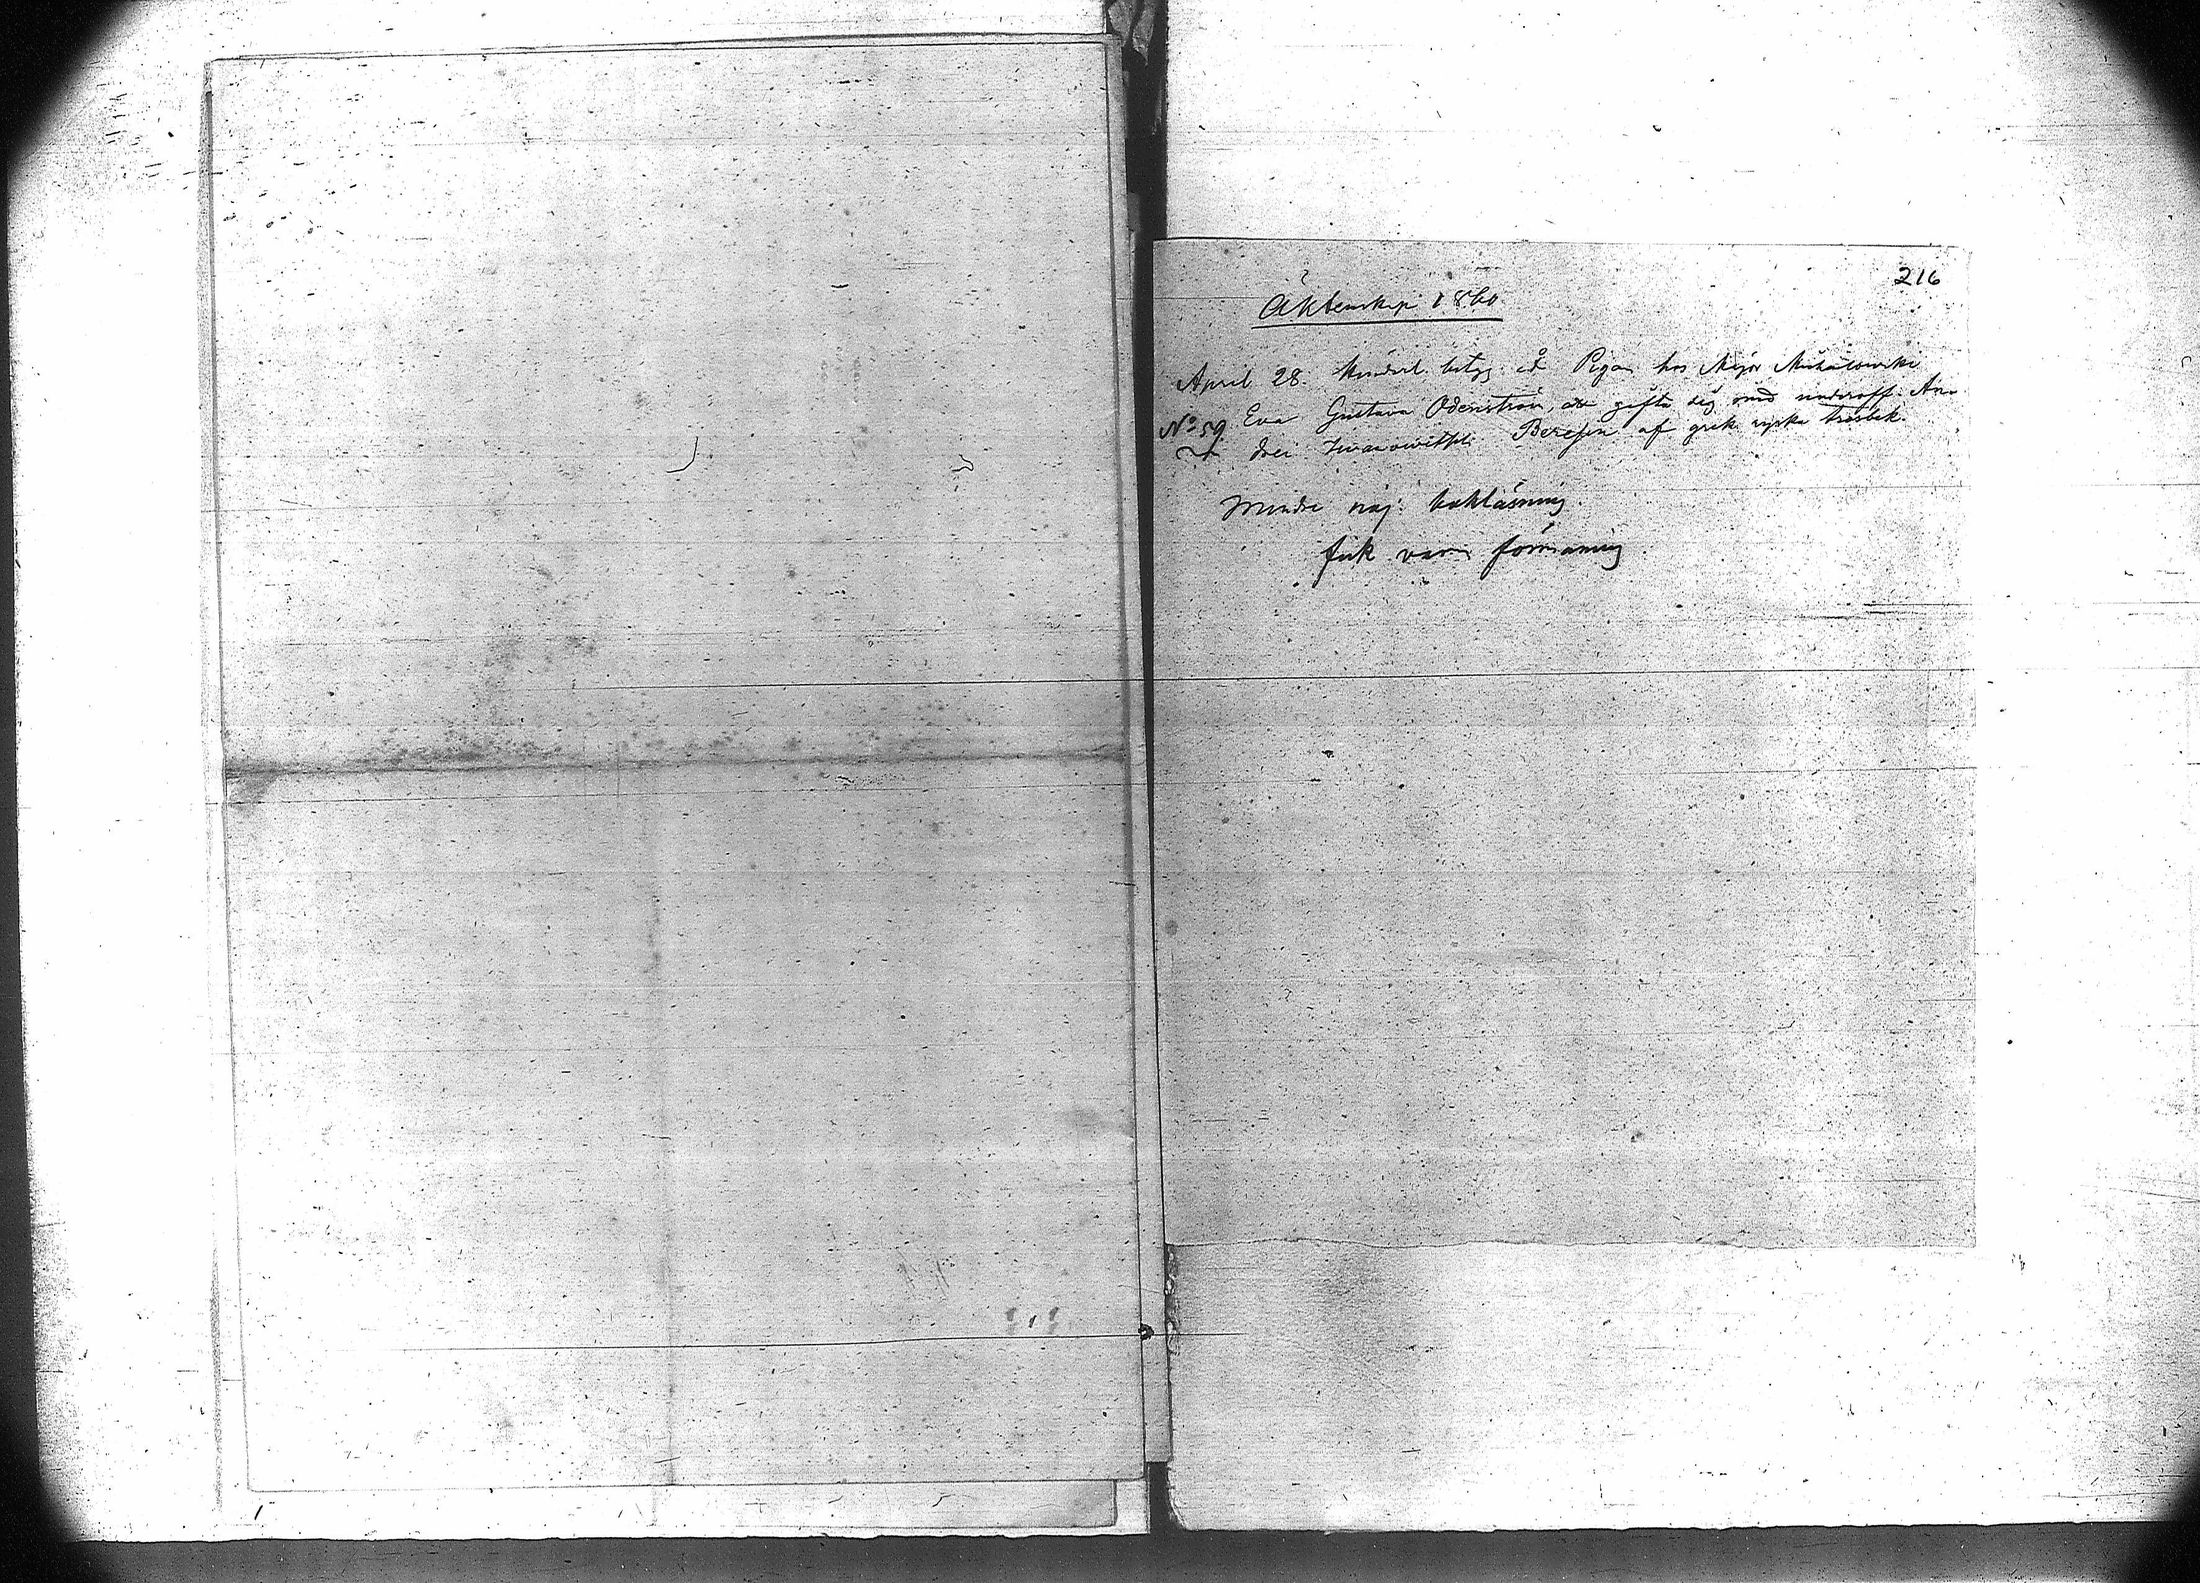 216
Äktenskap 1860
April 28. betyg åt Pigan hos Major
No 59. Eva Gustava Odenström, att gifta sig med underoff. An-
drei Iwanowitsch Beresin af grek ryska trosbek.
Mindre nöj. bokläsning.
fick varm förmaning.